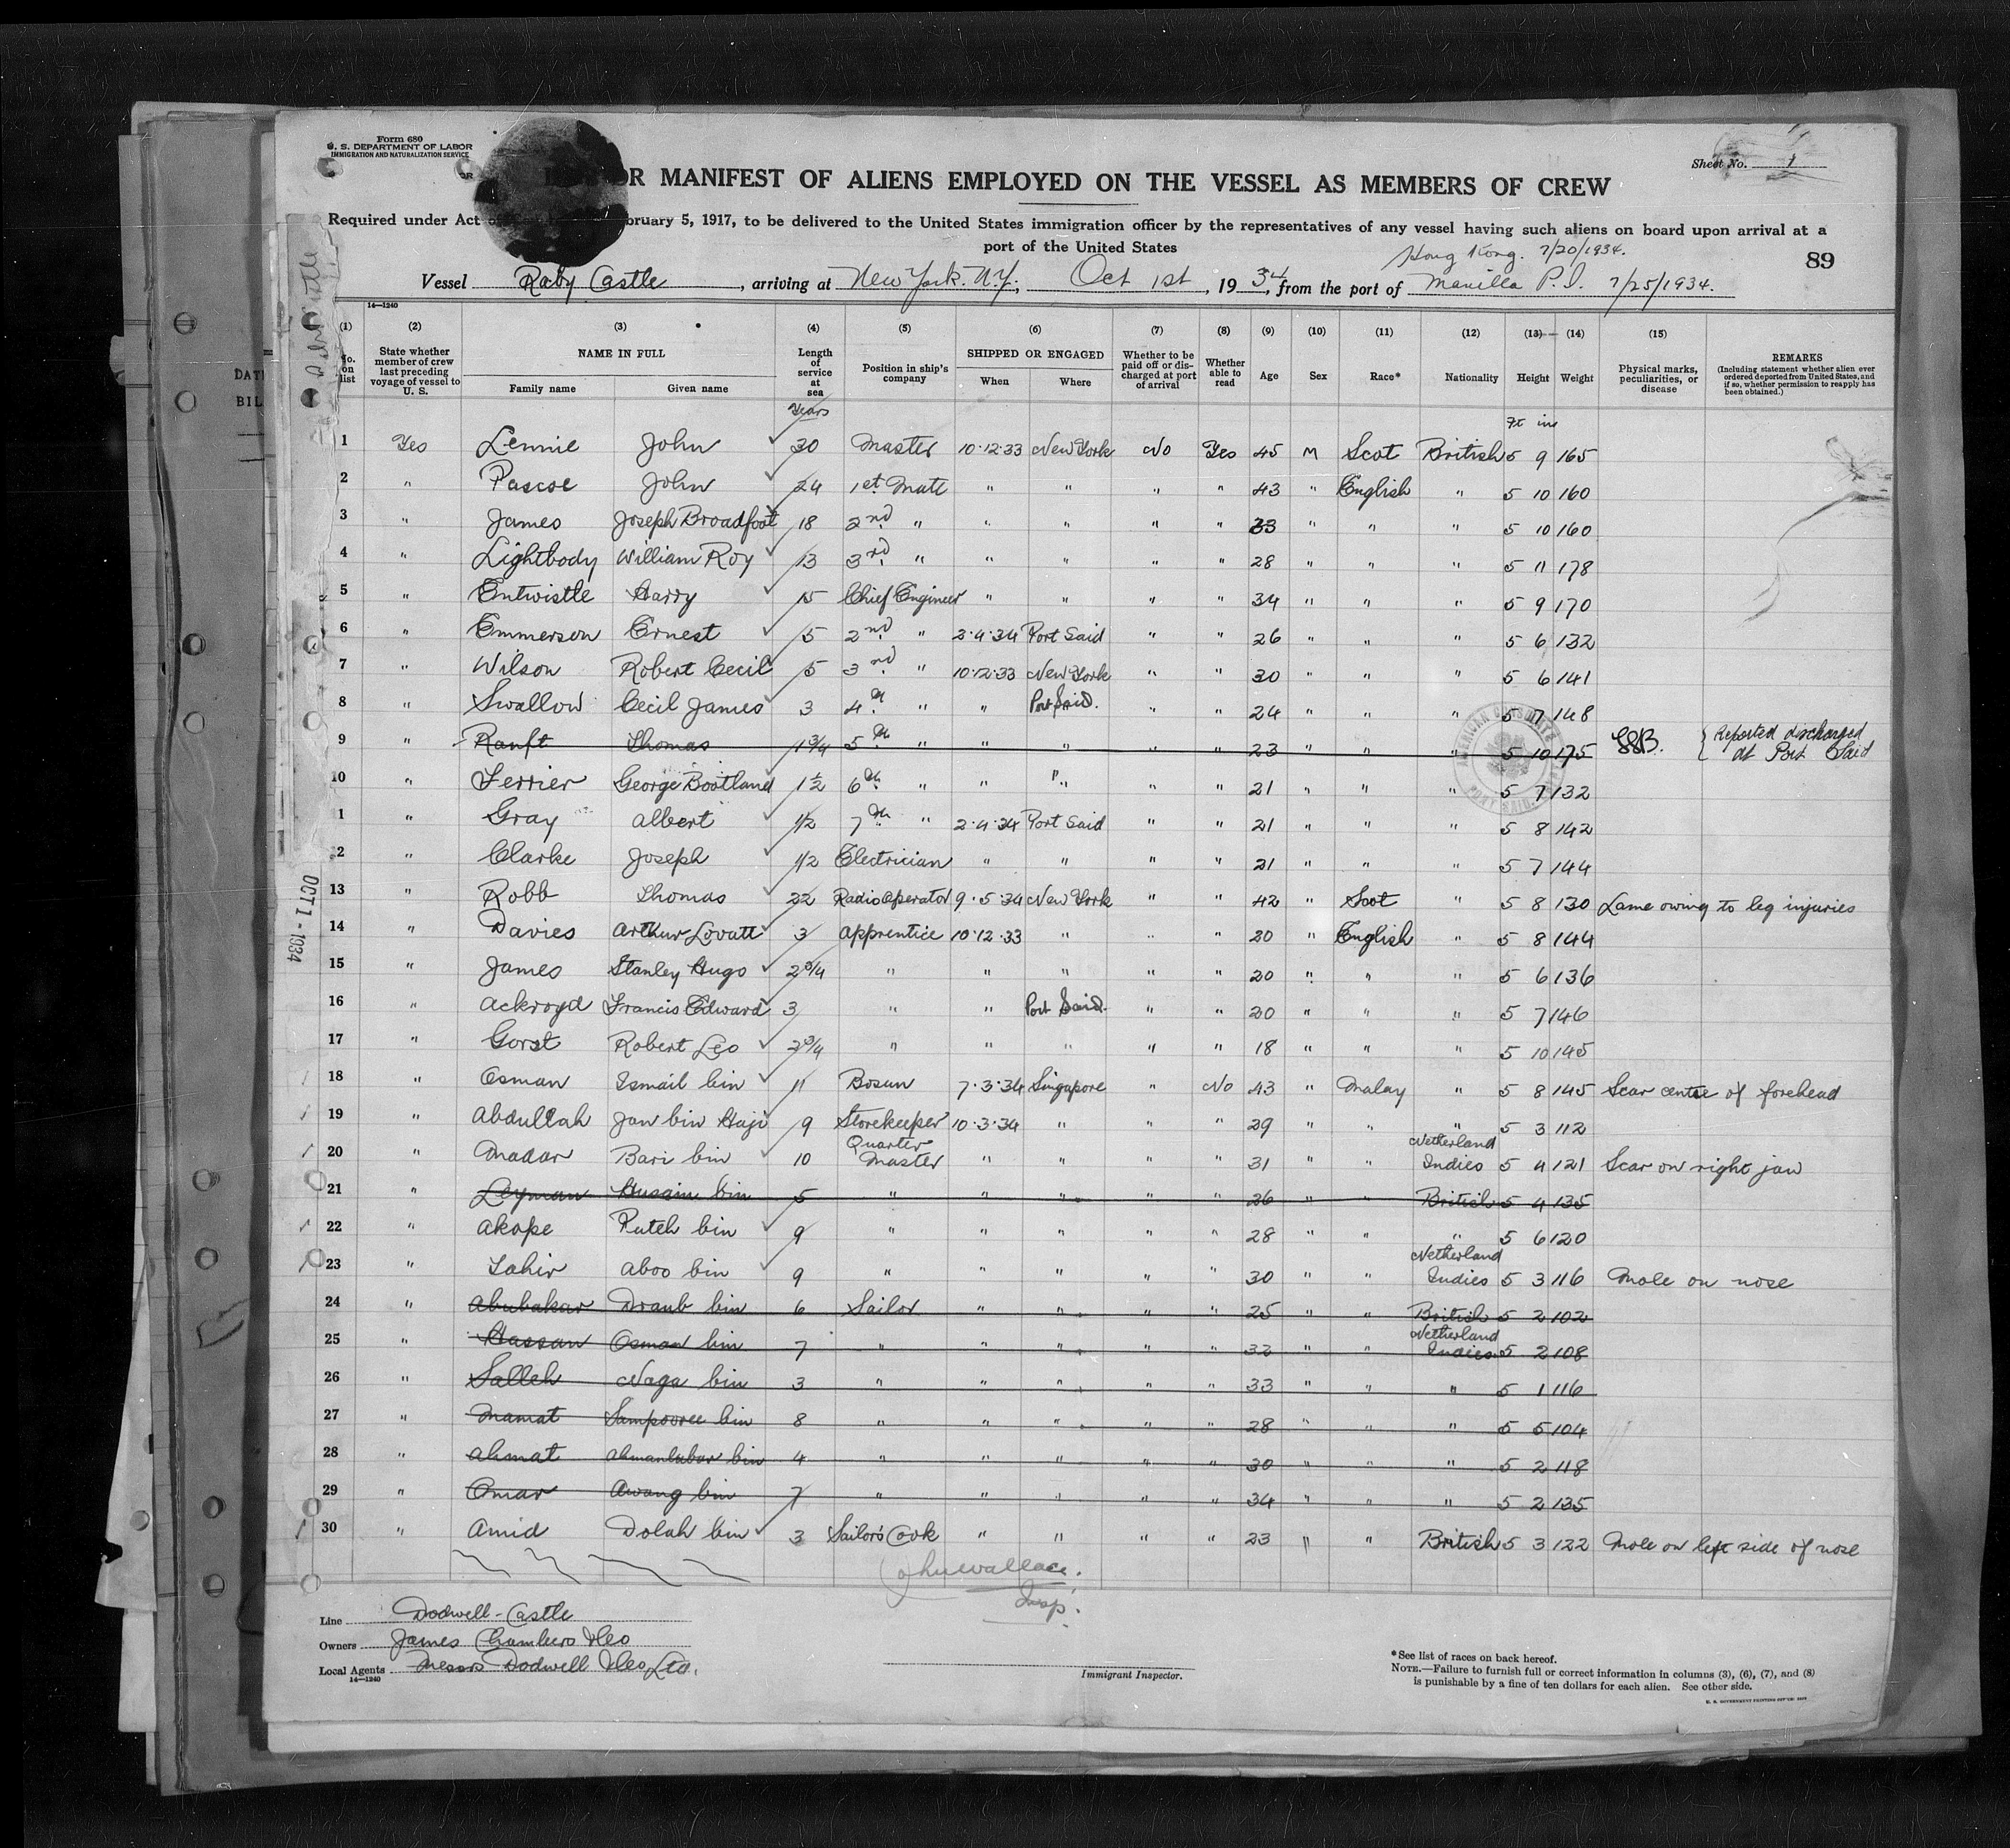 Form 680
U. S. DEPARTMENT OF LABOR
IMMIGRATION AND NATURALIZATION SERVICE
Sheet No. 1
OR MANIFEST OF ALIENS EMPLOYED ON THE VESSEL AS MEMBERS OF CREW
Required under Act of February 5, 1917, to be delivered to the United States immigration officer by the representatives of any vessel having such aliens on board upon arrival at a
port of the United States
Hong Kong. 7/20/1934.
89
Vessel Raby Castle, arriving at New York. N.Y., Oct 1st, 1934, from the port of Manilla P.I. 7/25/1934.
14—1240
(1) (2) (3) (4) (5) (6) (7) (8) (9) (10) (11) (12) (13) (14) (15)
No. on list
State whether member of crew last preceding voyage of vessel to U. S.
NAME IN FULL
Family name
Given name
Length of service at sea
Position in ship's company
SHIPPED OR ENGAGED
When
Where
Whether to be paid off or discharged at port of arrival
Whether able to read
Age
Sex
Race*
Nationality
Height
Weight
Physical marks, peculiarities, or disease
REMARKS
(Including statement whether alien ever ordered deported from United States, and if so, whether permission to reapply has been obtained.)
Years
Ft ins
1 Yes Lennie John 30 Master 10·12·33 New York No Yes 45 M Scot British 5 9 165
2 " Pascoe John 24 1st Mate " " " " 43 " English " 5 10 160
3 " James Joseph Broadfoot 18 2nd " " " " " 33 " " " 5 10 160
4 " Lightbody William Roy 13 3rd " " " " " 28 " " " 5 11 178
5 " Entwistle Harry 15 Chief Engineer " " " " 34 " " " 5 9 170
6 " Emmerson Ernest 5 2nd " 2·4·34 Port Said " " 26 " " " 5 6 132
7 " Wilson Robert Cecil 5 3rd " 10·12·33 New York " " 30 " " " 5 6 141
8 " Swallow Cecil James 3 4th " " Port Said. " " 24 " " " 5 7 148
9 " Ranft Thomas 1 3/4 5th " " " " " 23 " " " 5 10 175 Reported discharged at Port Said
10 " Ferrier George Bootland 1 1/2 6th " " " " " 21 " " " 5 7 132
11 " Gray Albert 1/2 7th " 2·4·34 Port Said " " 21 " " " 5 8 142
12 " Clarke Joseph 1/2 Electrician " " " " 21 " " " 5 7 144
13 " Robb Thomas 22 Radio Operator 9·5·34 New York " " 42 " Scot " 5 8 130 Lame owing to leg injuries
14 " Davies Arthur Lovatt 3 Apprentice 10·12·33 " " " 20 " English " 5 8 144
15 " James Stanley Hugo 2 3/4 " " " " " 20 " " " 5 6 136
16 " Ackroyd Francis Edward 3 " " Port Said. " " 20 " " " 5 7 146
17 " Gorst Robert Leo 2 3/4 " " " " " 18 " " " 5 10 145
18 " Osman Ismail bin 11 Bosun 7·3·34 Singapore " No 43 " Malay " 5 8 145 Scar centre of forehead
19 " Abdullah Jan bin Haji 9 Storekeeper 10·3·34 " " " 29 " " " 5 3 112
20 " Madar Bari bin 10 Quarter Master " " " " 31 " " Netherland Indies 5 4 121 Scar on right jaw
21 " Leyman Husain bin 5 " " " " " 26 " " British 5 4 135
22 " Akope Puteh bin 9 " " " " " 28 " " " 5 6 120
23 " Tahir Aboo bin 9 " " " " " 30 " " Netherland Indies 5 3 116 Mole on nose
24 " Abubakar Draub bin 6 Sailor " " " " 25 " " British 5 2 102
25 " Hassan Osman bin 7 " " " " " 32 " " Netherland Indies 5 2 108
26 " Salleh Naga bin 3 " " " " " 33 " " " 5 1 116
27 " Mamat bin 8 " " " " " 28 " " " 5 5 104
28 " Ahmat bin 4 " " " " " 30 " " " 5 2 118
29 " Omar Awang bin 7 " " " " " 34 " " " 5 2 135
30 " Amid Dolah bin 3 Sailor's Cook " " " " 23 " " British 5 3 122 Mole on left side of nose
AMERICAN CONSULATE
PORT SAID,
OCT 1 - 1934
John Wallace.
Insp.
Line Dodwell-Castle
Owners James Chambers & Co
Local Agents Messrs Dodwell & Co Ltd.
14—1240
Immigrant Inspector.
*See list of races on back hereof.
NOTE.—Failure to furnish full or correct information in columns (3), (6), (7), and (8)
is punishable by a fine of ten dollars for each alien. See other side.
U. S. GOVERNMENT PRINTING OFFICE